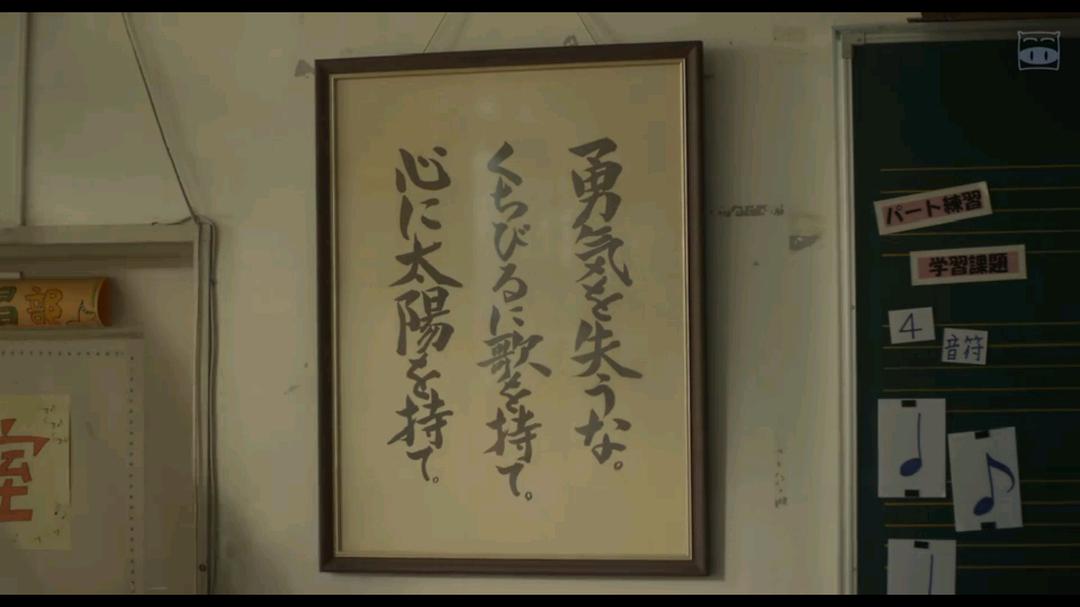 勇気を失うな。
くちびるに歌を持て。
心に太陽を持て。
パート練習
学習課題
4
音符
部
室